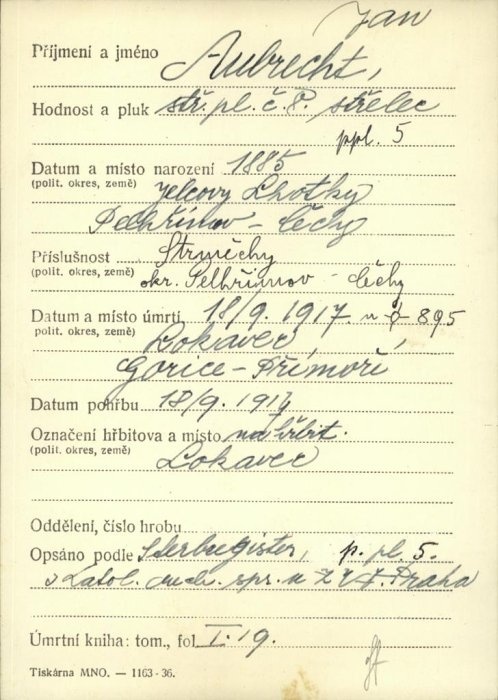 Jan
Příjmení a jméno Aubrecht,
Hodnost a pluk stř. pl. č. 8. střelec
ppl. 5
Datum a místo narození 1885
(polit. okres, země) Jelcovy Lhotky
Pelhřimov - Čechy
Příslušnost Strměchy
(polit. okres, země) okr. Pelhřimov - Čechy
Datum a místo úmrtí 18/9. 1917. 895
polit. okres, země) Lokavec,
Gorice - Přímoří
Datum pohřbu 18/9. 1917
Označení hřbitova a místo na hřbit.
(polit. okres, země) Lokavec
Oddělení, číslo hrobu
Opsáno podle Sterberegister, p. pl. 5.
v katol. duch. spr. Praha
Úmrtní kniha: tom., fol I. 19.
Tiskárna MNO. — 1163-36.